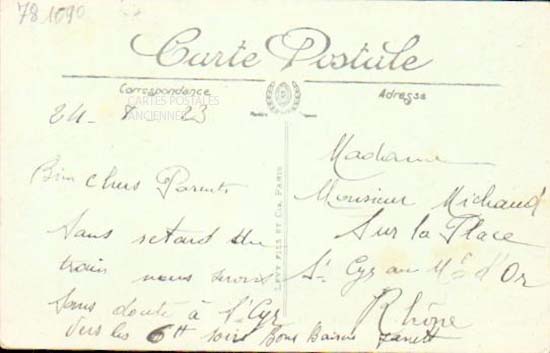 781090
Carte Postale
Correspondance
Adresse
CARTES POSTALES
ANCIENNES
24 - 8 23
Bien chers Parents
Sans retard du
train nous serons
sans doute à St Cyr
vers les 6H soir Bons Baisers
LEVY FILS ET CIE PARIS
Madame
Monsieur Michaud
Sur la Place
St Cyr au Mt d'Or
Rhône